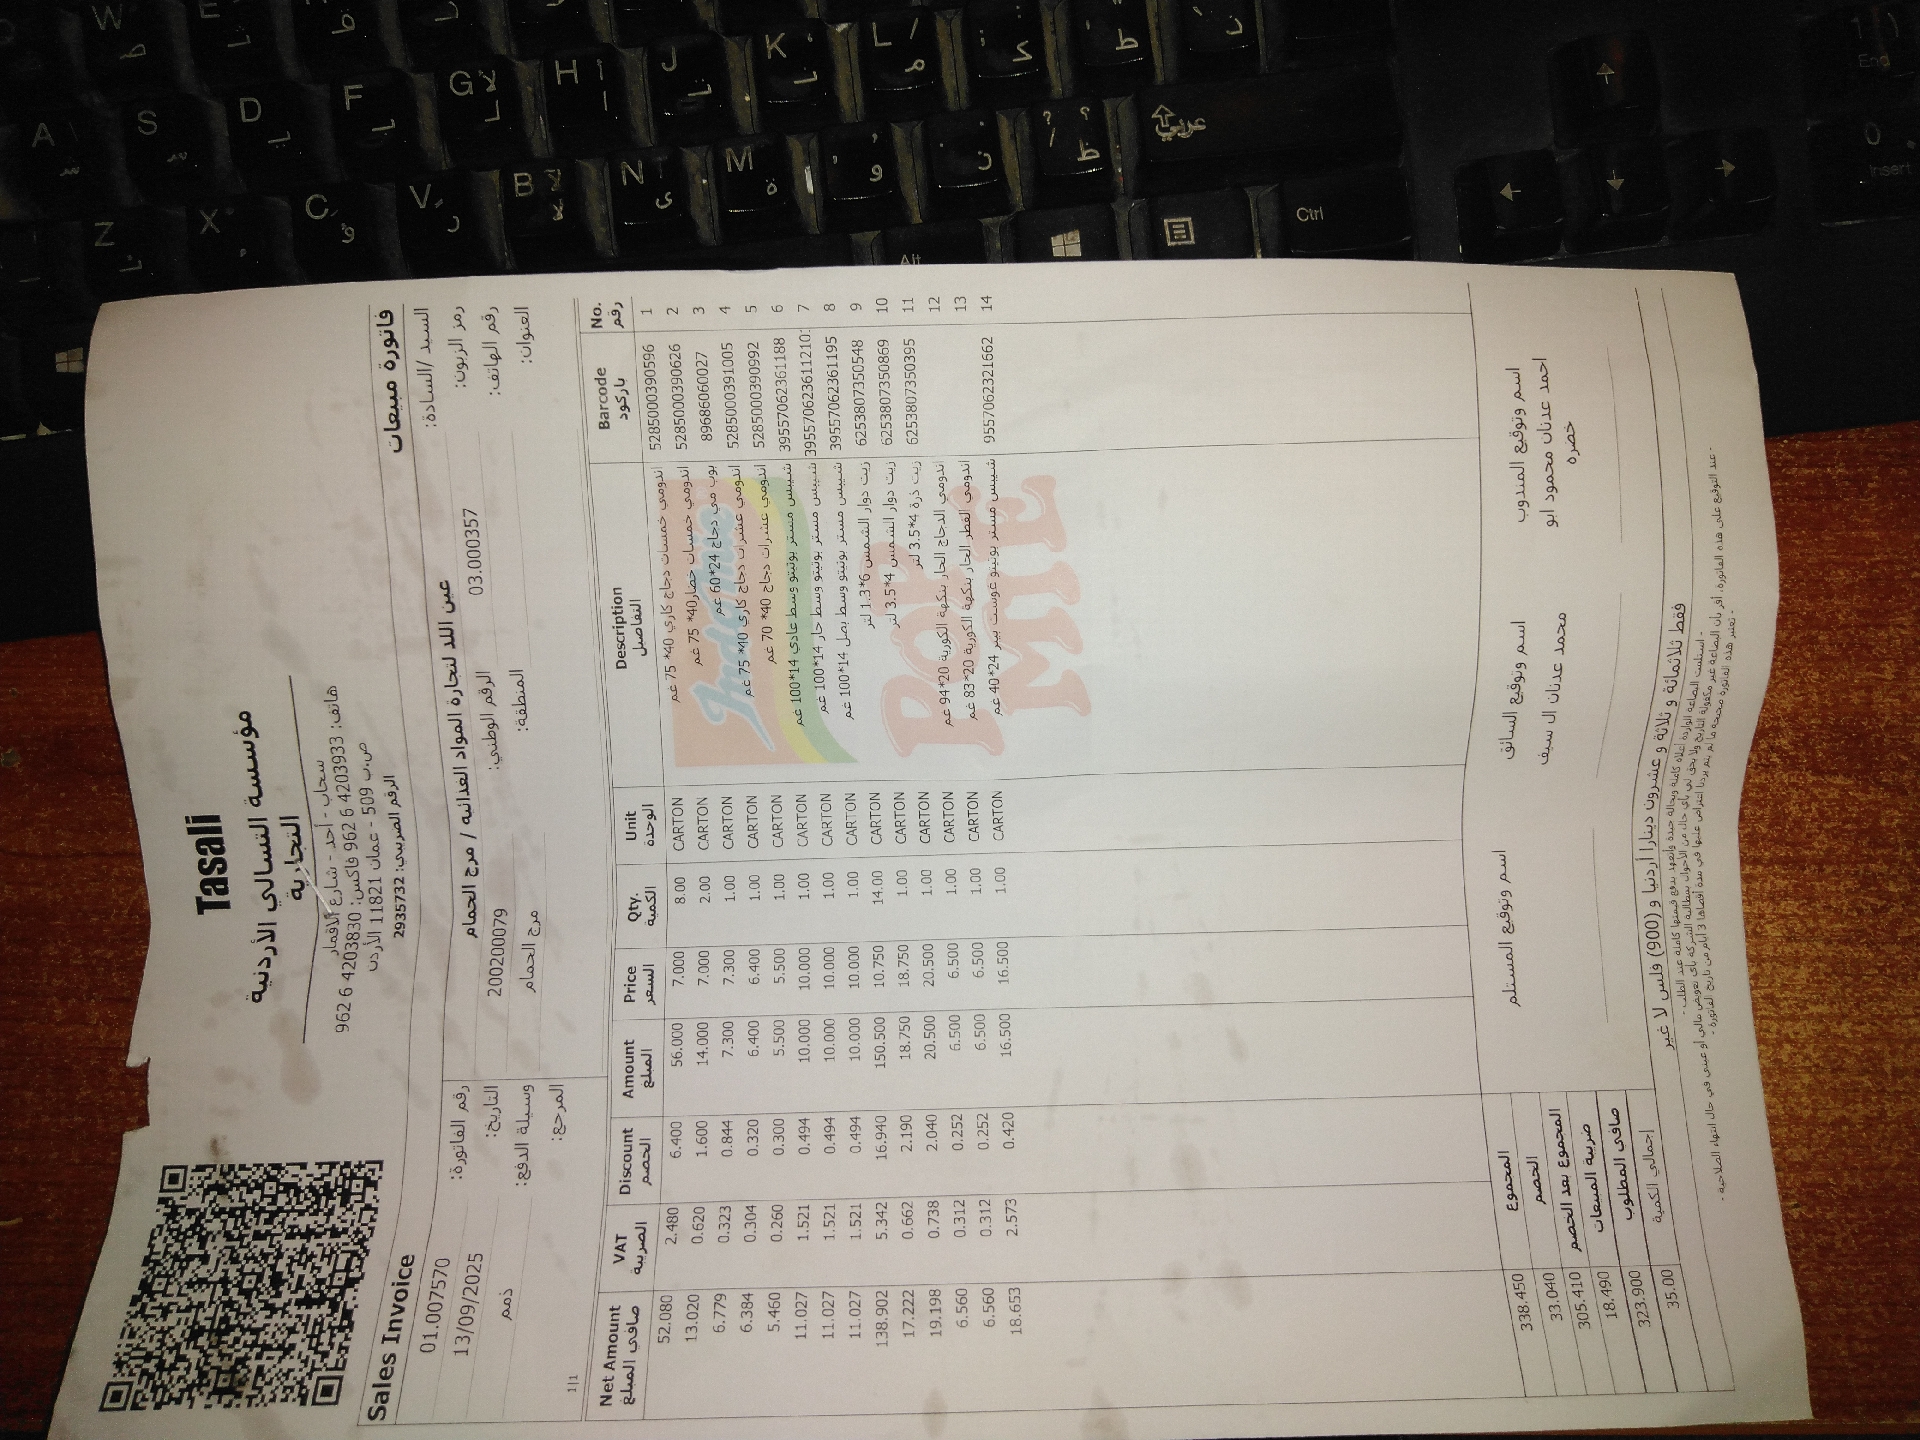 Tasali
مؤسسة التسالي الأردنية
التجارية
سحاب - أحد - شارع الأقمار
هاتف: 4203933 6 962 فاكس: 4203830 6 962
ص.ب 509 - عمان 11821 الأردن
الرقم الضريبي: 2935732
فاتورة مبيعات
Sales Invoice
السيد /السادة: عين اللد لتجارة المواد الغذائيه / مرج الحمام
رقم الفاتورة: 01.007570
رمز الزبون: 03.000357
الرقم الوطني: 200200079
التاريخ: 13/09/2025
رقم الهاتف:
المنطقة: مرج الحمام
وسيلة الدفع: ذمم
العنوان:
المرجع:
1|1
No. Barcode Description Unit Qty. Price Amount Discount VAT Net Amount
رقم باركود التفاصيل الوحدة الكمية السعر المبلغ الخصم الضريبة صافي المبلغ
1 5285000390596 اندومي خمسات دجاج كاري 40* 75 غم CARTON 8.00 7.000 56.000 6.400 2.480 52.080
2 5285000390626 اندومي خمسات خضار 40* 75 غم CARTON 2.00 7.000 14.000 1.600 0.620 13.020
3 8968606​0027 بوب مي دجاج 24*60 غم CARTON 1.00 7.300 7.300 0.844 0.323 6.779
4 5285000391005 اندومي عشرات دجاج كاري 40* 75 غم CARTON 1.00 6.400 6.400 0.320 0.304 6.384
5 5285000390992 اندومي عشرات دجاج 40* 70 غم CARTON 1.00 5.500 5.500 0.300 0.260 5.460
6 3955706236​1188 شيبس مستر بوتيتو وسط عادي 14*100 غم CARTON 1.00 10.000 10.000 0.494 1.521 11.027
7 شيبس مستر بوتيتو وسط حار 14*100 غم CARTON 1.00 10.000 10.000 0.494 1.521 11.027
8 39557062361195 شيبس مستر بوتيتو وسط بصل 14*100 غم CARTON 1.00 10.000 10.000 0.494 1.521 11.027
9 6253807350548 زيت دوار الشمس 6*1.3 لتر CARTON 14.00 10.750 150.500 16.940 5.342 138.902
10 6253807350869 زيت دوار الشمس 4*3.5 لتر CARTON 1.00 18.750 18.750 2.190 0.662 17.222
11 6253807350395 زيت ذرة 4*3.5 لتر CARTON 1.00 20.500 20.500 2.040 0.738 19.198
12 اندومي الدجاج الحار بنكهة الكورية 20*94 غم CARTON 1.00 6.500 6.500 0.252 0.312 6.560
13 اندومي الفطر الحار بنكهة الكورية 20*83 غم CARTON 1.00 6.500 6.500 0.252 0.312 6.560
14 9557062321662 شيبس مستر بوتيتو غوست بيبر 24*40 غم CARTON 1.00 16.500 16.500 0.420 2.573 18.653
Indomie
POP
MIE
المجموع 338.450
الخصم 33.040
المجموع بعد الخصم 305.410
ضريبة المبيعات 18.490
صافي المطلوب 323.900
إجمالي الكمية 35.00
اسم وتوقيع المندوب
احمد عدنان محمود ابو
خضره
اسم وتوقيع السائق
محمد عدنان ال سيف
اسم وتوقيع المستلم
فقط ثلاثمائة و ثلاثة و عشرون دينارا أردنيا و (900) فلس لا غير
- استلمت البضاعة الواردة أعلاه كاملة وبحالة جيدة واتعهد بدفع قيمتها كاملة عند الطلب -
- عند التوقيع على هذه الفاتورة، أقر بأن البضاعة غير مكفولة التاريخ ولا يحق لي بأي حال من الأحوال بمطالبة الشركة بأي تعويض مالي أو عيني في حال انتهاء الصلاحية -
- تعتبر هذه الفاتورة صحيحة ما لم يتم يردنا اعتراض عليها في مدة أقصاها 3 أيام من تاريخ الفاتورة -
W
E
A
S
D
F
G
H
J
K
L
Z
X
C
V
B
N
M
Alt
Ctrl
عربي
End
1
0
Insert